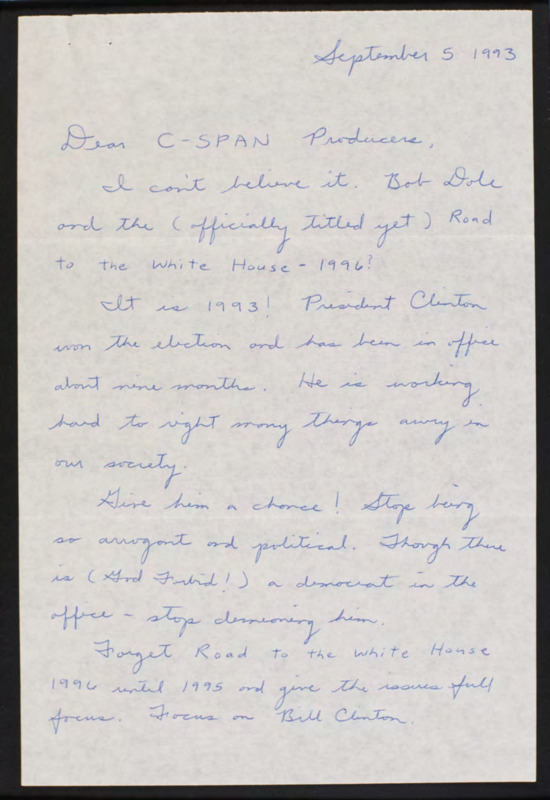 September 5 1993
Dear C-SPAN Producers,
I can't believe it. Bob Dole
and the (officially titled yet) Road
to the White House - 1996?
It is 1993! President Clinton
won the election and has been in office
about nine months. He is working
hard to right many things awry in
our society.
Give him a chance! Stop being
so arrogant and political. Though there
is (God Forbid!) a democrat in the
office - stop demeaning him.
Forget Road to the White House
1996 until 1995 and give the issues full
focus. Focus on Bill Clinton.